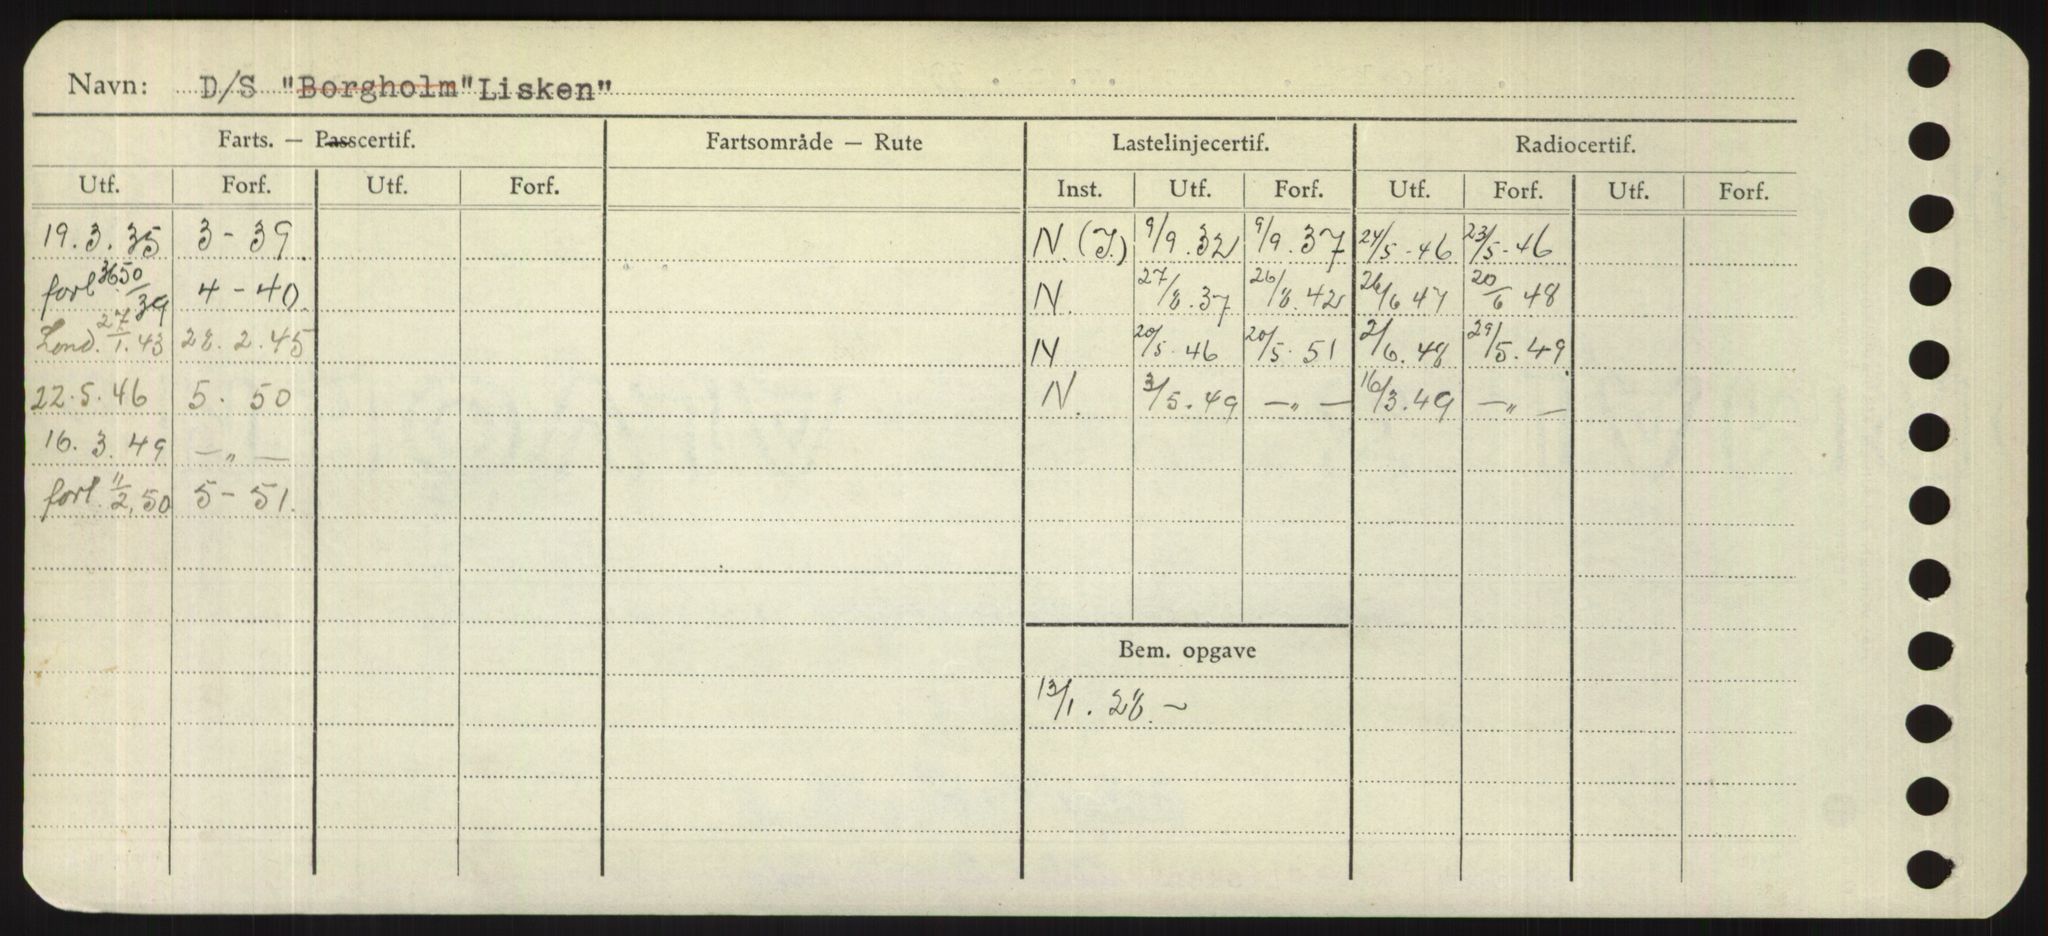 Navn: D/S "Borgholm" Lisken"
Farts. — Passcertif. Fartsområde — Rute Lastelinjecertif. Radiocertif.
Utf. Forf. Utf. Forf. Inst. Utf. Forf. Utf. Forf. Utf. Forf.
19.3.35 3-39. N.(J.) 9/9.32 9/9.37 24/5-46 23/5-46
forl 4-40. N. 27/8.37 26/8.42 26/6 47 20/6 48
Lond. 27/1.43 28.2.45 N 20/5.46 20/5.51 2/6.48 29/5.49
22.5.46 5.50 N. 3/5.49 —„— 16/3.49 —„—
16.3.49 —„—
forl. 11/2.50 5-51.
Bem. opgave
13/1.28.~